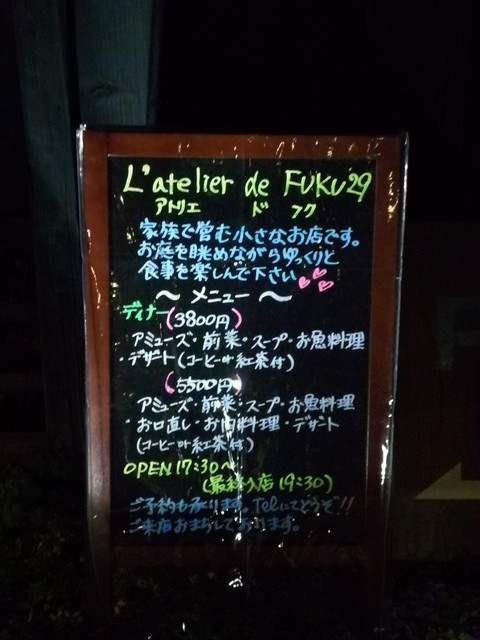 L'atelier de FUKU29
アトリエ ド フク
家族で営む小さなお店です。
お庭を眺めながらゆっくりと
食事を楽しんで下さい
～ メニュー ～
ディナー(3800円)
アミューズ・前菜・スープ・お魚料理
・デザート(コーヒーor紅茶付)
(5500円)
アミューズ・前菜・スープ・お魚料理
お口直し・お肉料理・デザート
(コーヒーor紅茶付)
OPEN 17:30～
(最終入店 19:30)
ご予約も承ります。Telにてどうぞ!!
ご来店おまちしております。